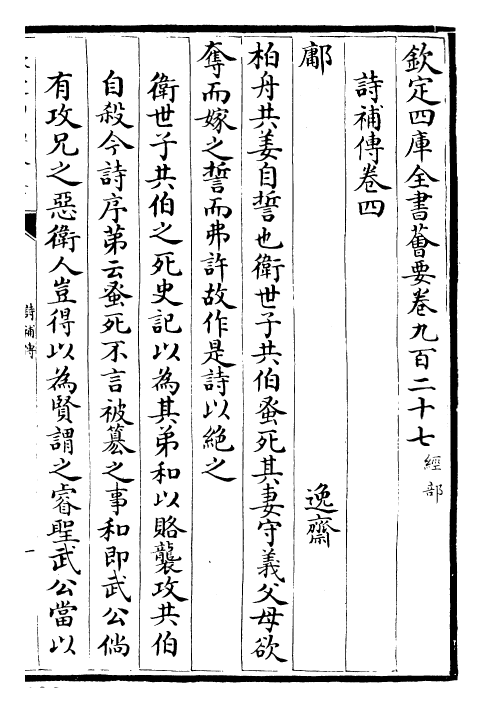 欽定四庫全書薈要卷九百二十七 經部
詩補傳卷四
逸齋
鄘
柏舟共姜自誓也衛世子共伯蚤死其妻守義父母欲
奪而嫁之誓而弗許故作是詩以絶之
衛世子共伯之死史記以為其弟和以賂襲攻共伯
自殺今詩序第云蚤死不言被簒之事和即武公倘
有攻兄之惡衛人豈得以為賢謂之睿聖武公當以
詩補傳
一